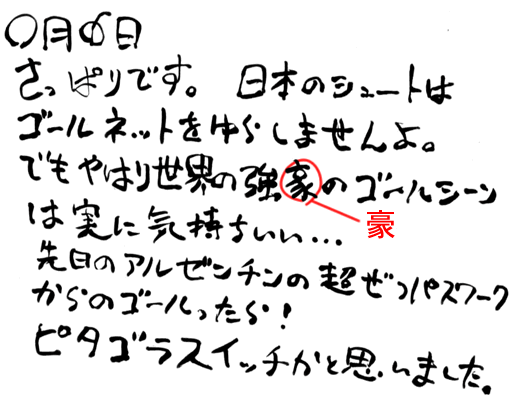 〇月〇日
さっぱりです。 日本のシュートは
ゴールネットをゆらしませんよ。
でもやはり世界の強豪のゴールシーン
豪
は実に気持ちいい…
先日のアルゼンチンの超ぜつパスワーク
からのゴールったら!
ピタゴラスイッチかと思いました。